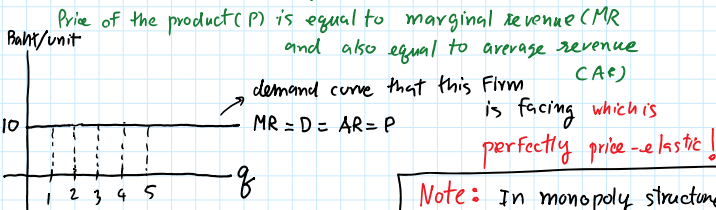 Price of the product (P) is equal to marginal revenue (MR
and also equal to average revenue
(AR)
Baht/unit
demand curve that this Firm
is facing which is
perfectly price-elastic!
10
MR = D = AR = P
q
1 2 3 4 5
Note: In monopoly structure